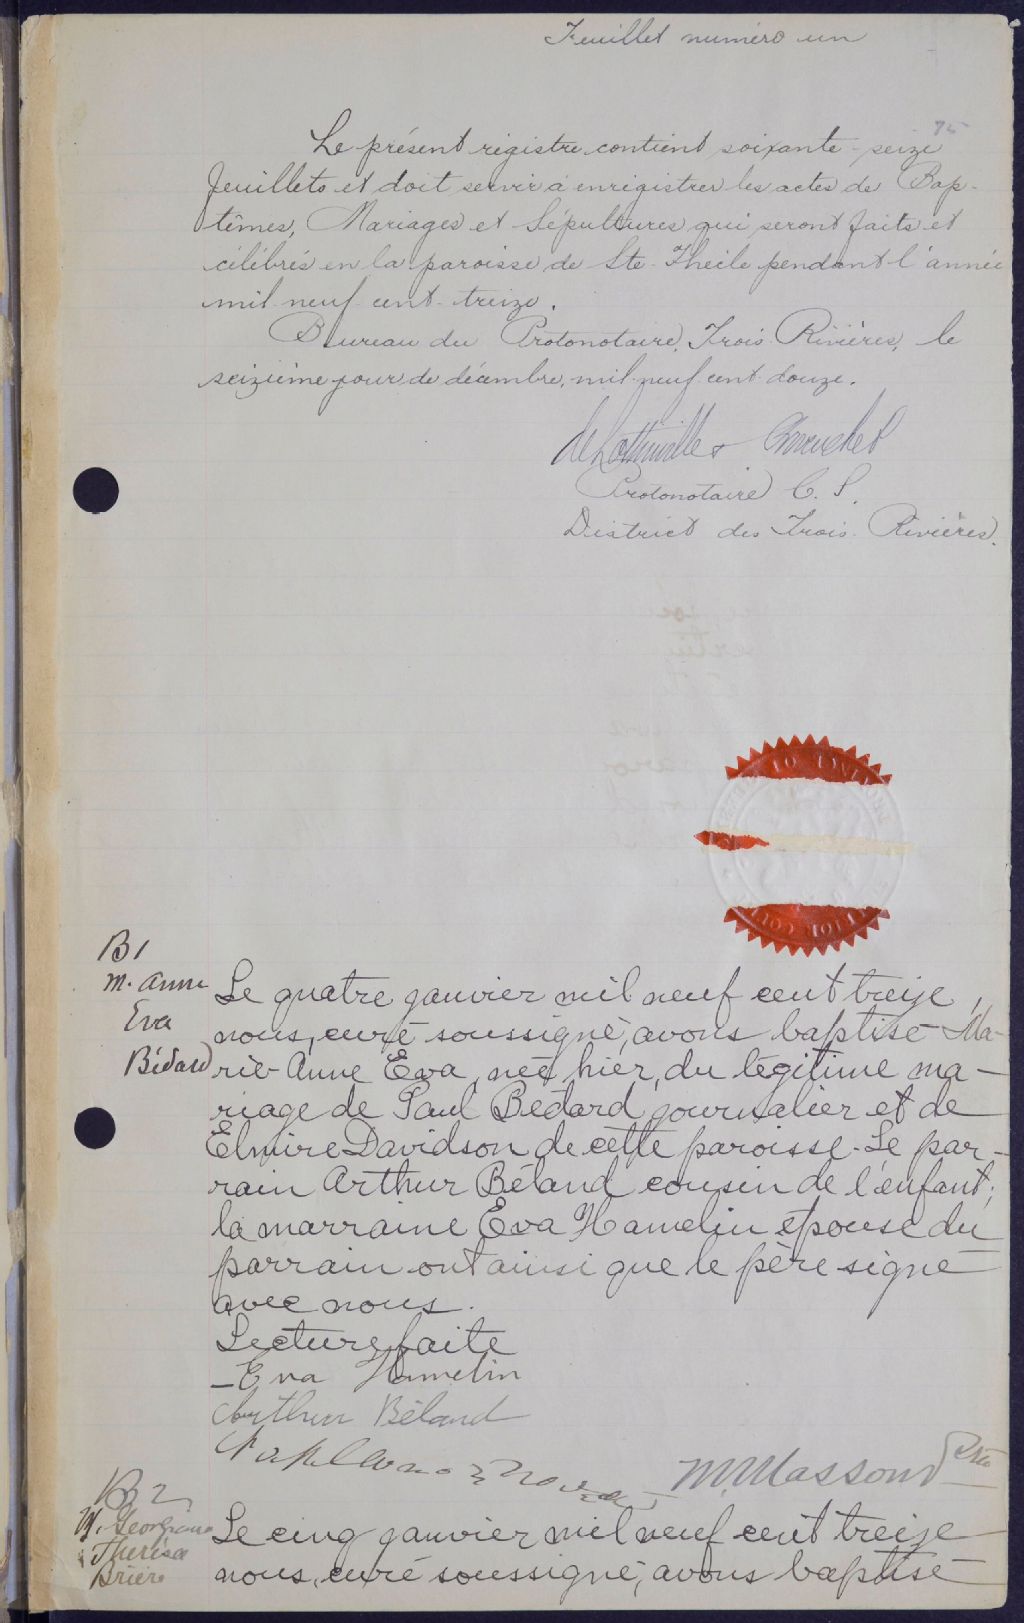 Feuillet numéro un
75
Le présent régistre contient soixante-seize
feuillets et doit servir à enrégistrer les actes de Bap-
têmes, Mariages et Sépultures qui seront faits et
célébrés en la paroisse de Ste-Thècle pendant l'année
mil-neuf-cent-treize.
Bureau du Protonotaire, Trois-Rivières, le
seizième jour de décembre, mil-neuf-cent-douze.
Protonotaire C. S.
District des Trois-Rivières.
B1
M. Anne
Eva
Bédard
Le quatre janvier mil neuf cent treize,
nous, curé soussigné, avons baptisé Ma-
rie Anne Eva, née hier, du légitime ma-
riage de Paul Bédard journalier et de
Elmire Davidson de cette paroisse. Le par-
rain Arthur Béland cousin de l'enfant,
la marraine Eva Hamelin épouse du
parrain ont ainsi que le père signé
avec nous.
Lecture faite
Eva Hamelin
Arthur Béland
M. Masson Ptre
B2
M. Georgiana
Thérésa
Brière
Le cinq janvier mil neuf cent treize
nous, curé soussigné, avons baptisé